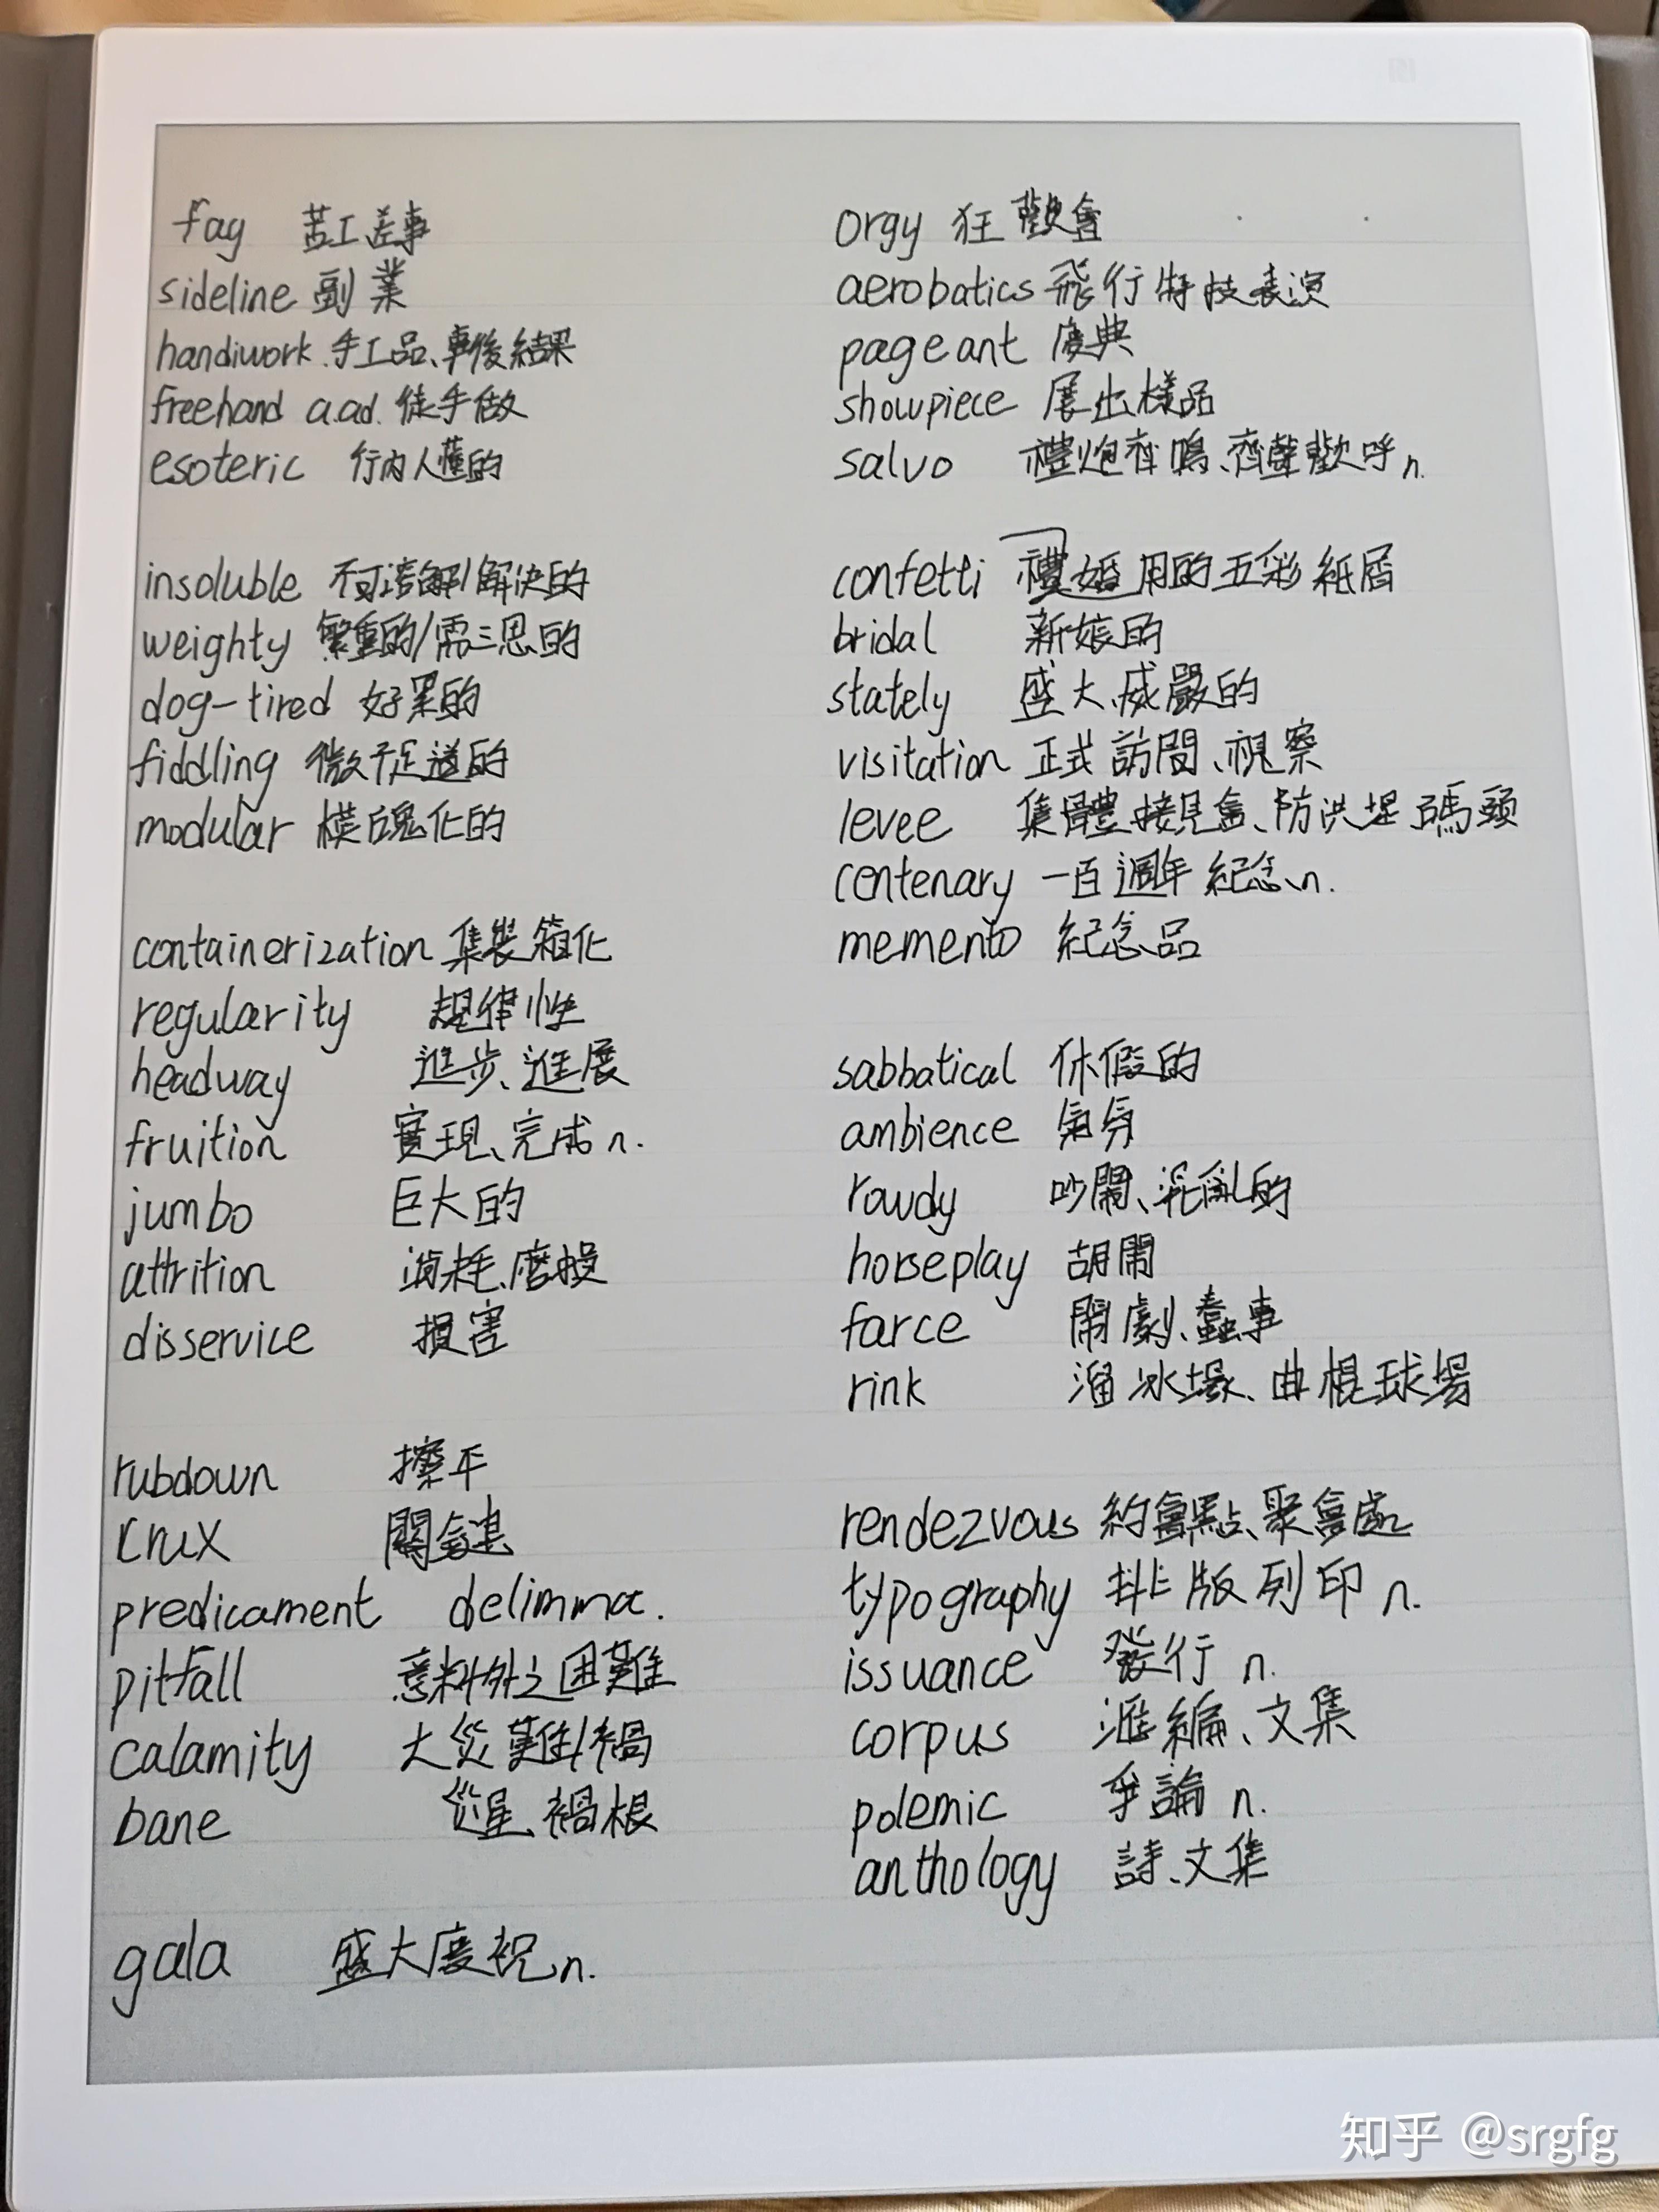 fag 苦工差事
sideline 副業
handiwork 手工品、事後結果
freehand a.ad. 徒手做
esoteric 行內人懂的
insoluble 不可溶解/解決的
weighty 繁重的/需三思的
dog-tired 好累的
fiddling 微不足道的
modular 模塊化的
containerization 集裝箱化
regularity 規律性
headway 進步、進展
fruition 實現、完成 n.
jumbo 巨大的
attrition 消耗、磨損
disservice 損害
rubdown 擦平
crux 關鍵
predicament delimma.
pitfall 意料外之困難
calamity 大災難/禍
bane 災星、禍根
gala 盛大慶祝 n.
orgy 狂歡會
aerobatics 飛行特技表演
pageant 慶典
showpiece 展出樣品
salvo 禮炮齊鳴、齊聲歡呼 n.
confetti 禮婚用的五彩紙屑
bridal 新娘的
stately 盛大、威嚴的
visitation 正式訪問、視察
levee 集體接見會、防洪堤、碼頭
centenary 一百週年紀念 n.
memento 紀念品
sabbatical 休假的
ambience 氣氛
rowdy 吵鬧、混亂的
horseplay 胡鬧
farce 鬧劇、蠢事
rink 溜冰場、曲棍球場
rendezvous 約會點、聚會處
typography 排版列印 n.
issuance 發行 n.
corpus 滙編、文集
polemic 爭論 n.
anthology 詩、文集
知乎 @srgfg